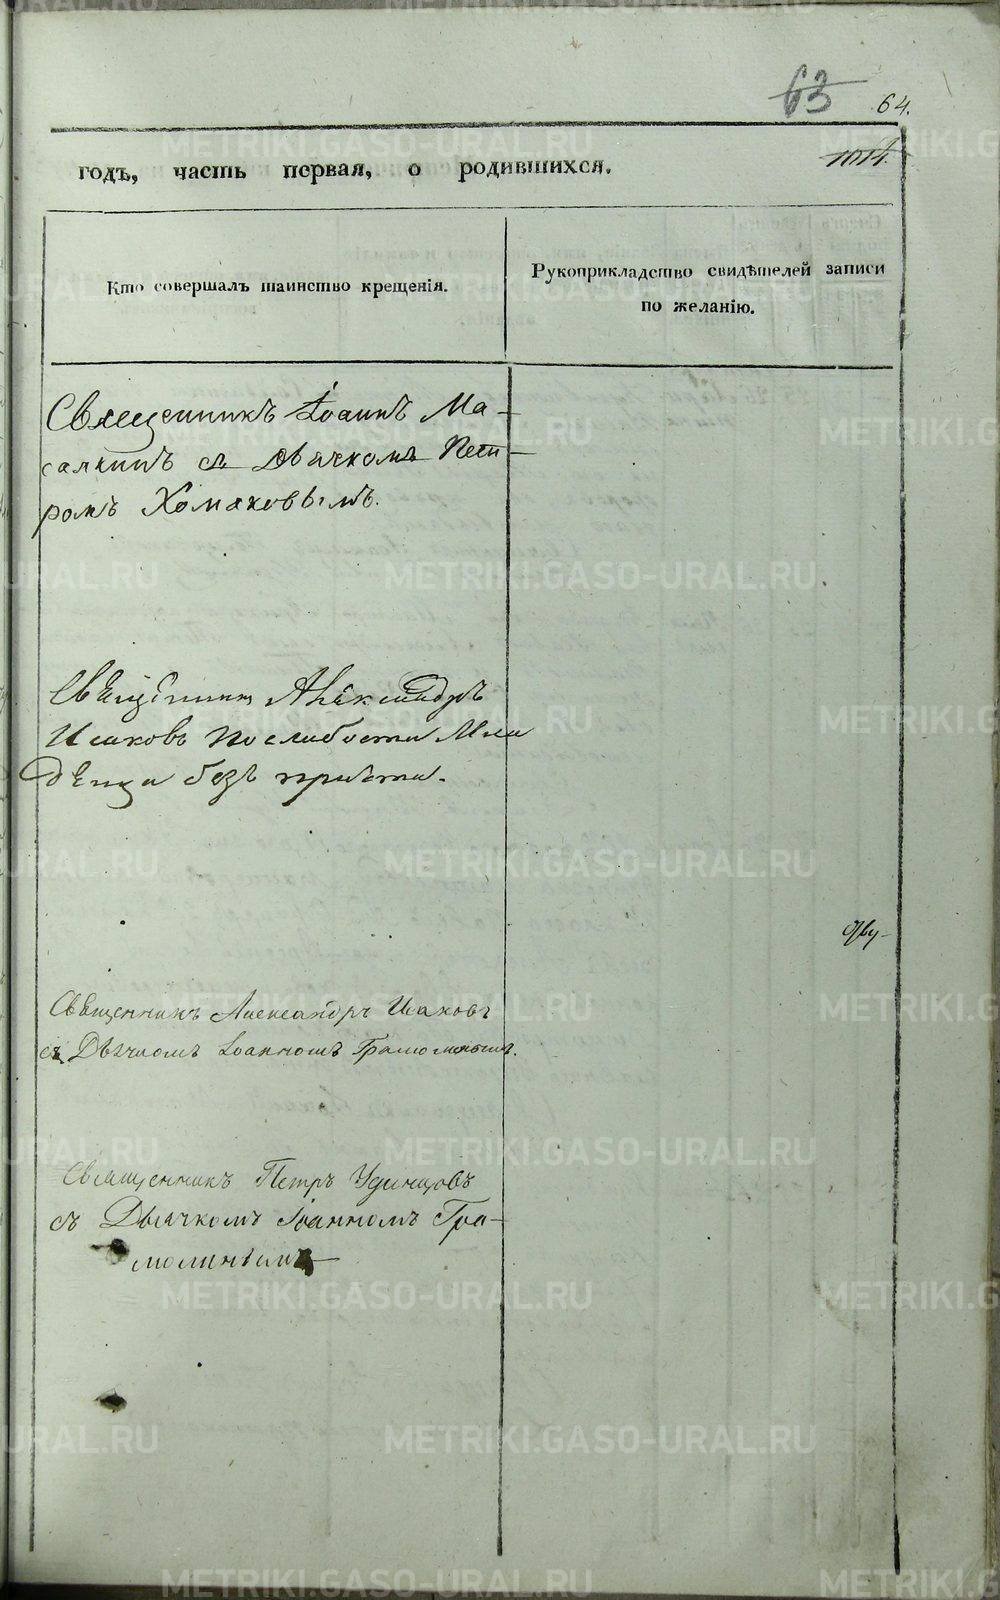 63 64.
1014.
годъ, часть первая, о родившихся.
Кто совершалъ таинство крещенія.
Рукоприкладство свидѣтелей записи
по желанію.
Священникъ Іоаннъ Ма-
салкинъ съ Дьячкомъ Пет-
ромъ Хомяковымъ.
Священникъ Александръ
Исаковъ по слабости Мла
денца безъ причта.
Священникъ Александръ Исаковъ
съ Дьячкомъ Іоанномъ Грамолинымъ.
Священникъ Петръ Удинцовъ
съ Дьячкомъ Іоанномъ Гра-
молинымъ
METRIKI.GASO-URAL.RU